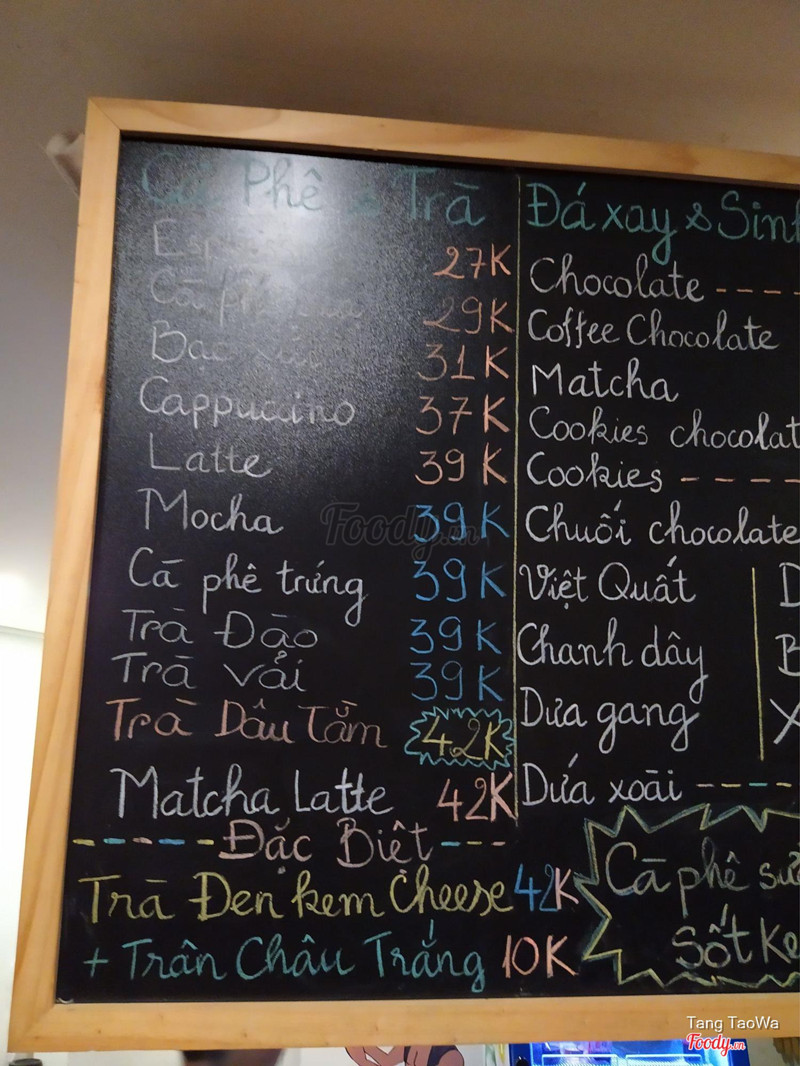 Cà Phê & Trà
27K
29K
Bạc xỉu 31K
Cappuccino 37K
Latte 39K
Mocha 39K
Cà phê trứng 39K
Trà Đào 39K
Trà vải 39K
Trà Dâu Tằm 42K
Matcha Latte 42K
Đặc Biệt
Trà Đen kem Cheese 42K
+ Trân Châu Trắng 10K
Đá xay & Sinh
Chocolate
Coffee Chocolate
Matcha
Cookies chocolat
Cookies
Chuối chocolate
Việt Quất
Chanh dây
Dưa gang
Dứa xoài
Cà phê
Sốt
Foody.vn
Tang TaoWa
Foody.vn